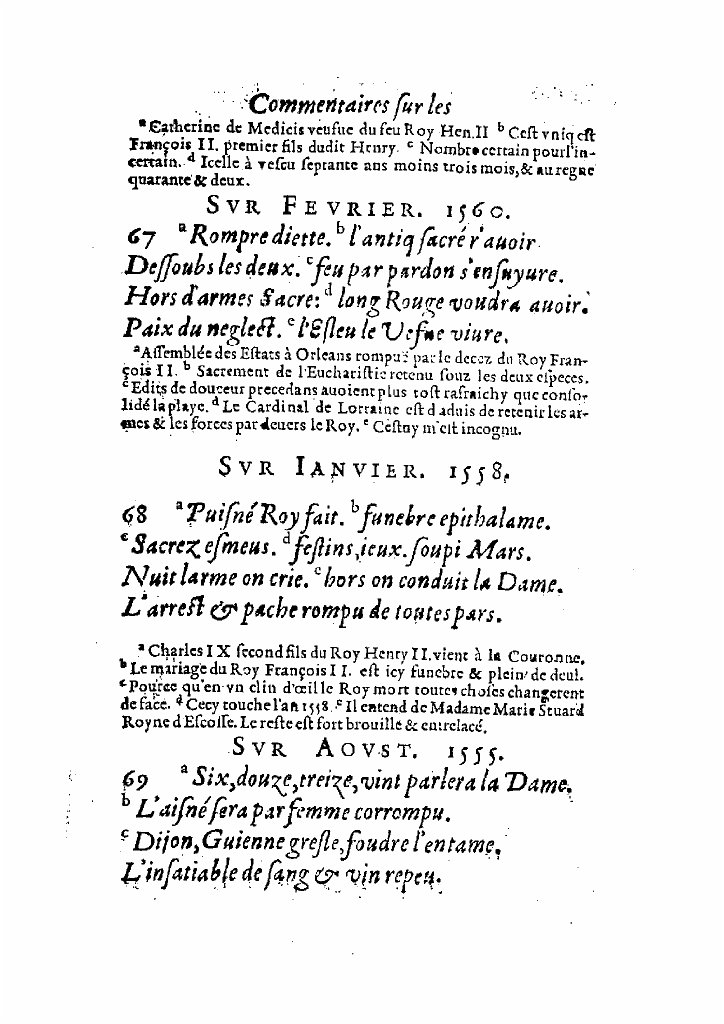 Commentaires ſur les
ᵃ Catherine de Medicis veufue du feu Roy Hen.II ᵇ Ceſt vniq eſt
François II. premier fils dudit Henry. ᶜ Nombre certain pour l'in-
certain. ᵈ Icelle à veſcu ſeptante ans moins trois mois, & au regne
quarante & deux.
SVR FEVRIER. 1560.
67 ᵃ Rompre diette. ᵇ l'antiq ſacré r'auoir
Deſſoubs les deux. ᶜ feu par pardon s'enſuyure.
Hors d'armes Sacre: ᵈ long Rouge voudra auoir.
Paix du neglect. ᵉ l'Eſleu le Vefue viure.
ᵃ Aſſemblée des Eſtats à Orleans rompue par le decez du Roy Fran-
çois II. ᵇ Sacrement de l'Euchariſtie retenu ſouz les deux eſpeces.
ᶜ Edits de douceur precedans auoient plus toſt rafraichy que conſo-
lidé la playe. ᵈ Le Cardinal de Lorraine eſt d aduis de retenir les ar-
mes & les forces par deuers le Roy. ᵉ Ceſtuy m'eſt incognu.
SVR IANVIER. 1558.
68 ᵃ Puiſné Roy fait. ᵇ funebre epithalame.
ᶜ Sacrez eſmeus. ᵈ feſtins, ieux. ſoupi Mars.
Nuit larme on crie. ᵉ hors on conduit la Dame.
L'arreſt & pache rompu de toutes pars.
ᵃ Charles IX ſecond fils du Roy Henry II. vient à la Couronne.
ᵇ Le mariage du Roy François II. eſt icy funebre & plein de deul.
ᶜ Pource qu'en vn clin d'œil le Roy mort toutes choſes changerent
de face. ᵈ Cecy touche l'an 1558. ᵉ Il entend de Madame Marie Stuard
Royne d Eſcoſſe. Le reſte eſt fort brouillé & entrelacé.
SVR AOVST. 1555.
69 ᵃ Six, douze, treize, vint parlera la Dame.
ᵇ L'aiſné ſera par femme corrompu.
ᶜ Dijon, Guienne greſle, foudre l'entame.
L'inſatiable de ſang & vin repeu.